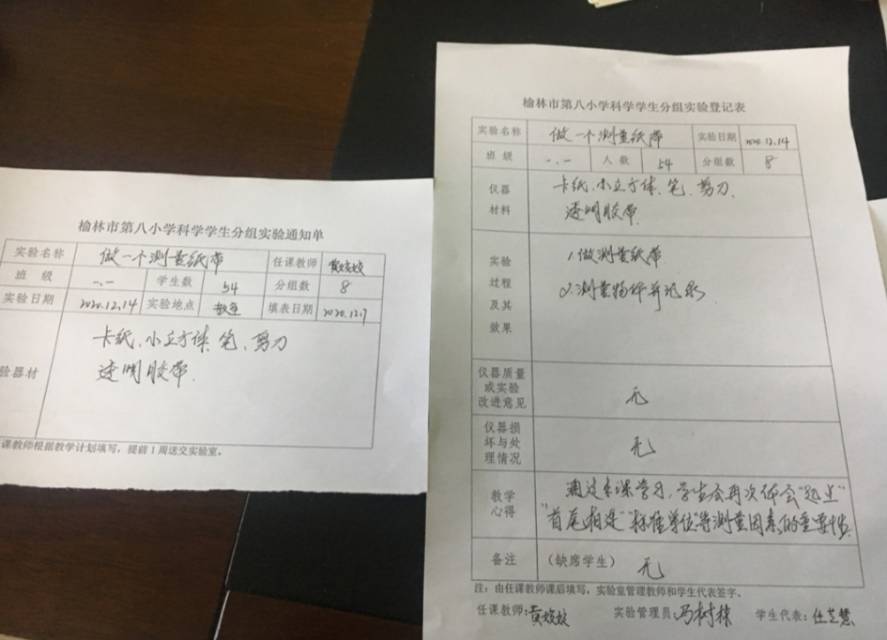 榆林市第八小学科学学生分组实验通知单
实验名称 做一个测量纸带 任课教师 黄姣姣
班 级 一.一 学生数 54 分组数 8
实验日期 2020.12.14 实验地点 教室 填表日期 2020.12.7
验器材 卡纸、小立方体、笔、剪刀
透明胶带.
课教师根据教学计划填写，提前1周送交实验室。
榆林市第八小学科学学生分组实验登记表
实验名称 做一个测量纸带 实验日期 2020.12.14
班 级 一.一 人 数 54 分组数 8
仪器
材料
卡纸、小立方体、笔、剪刀、
透明胶带.
实验
过程
及其
效果
1.做测量纸带
2.测量物体并记录
仪器质量
或实验
改进意见
无
仪器损
坏与处
理情况
无
教学
心得
通过本课学习，学生会再次体会“起点”
“首尾相连”“标准单位”等测量因素的重要性.
备注 （缺席学生） 无
注：由任课教师课后填写，实验室管理教师和学生代表签字。
任课教师：黄姣姣 实验管理员：冯树栋 学生代表：任芝慧